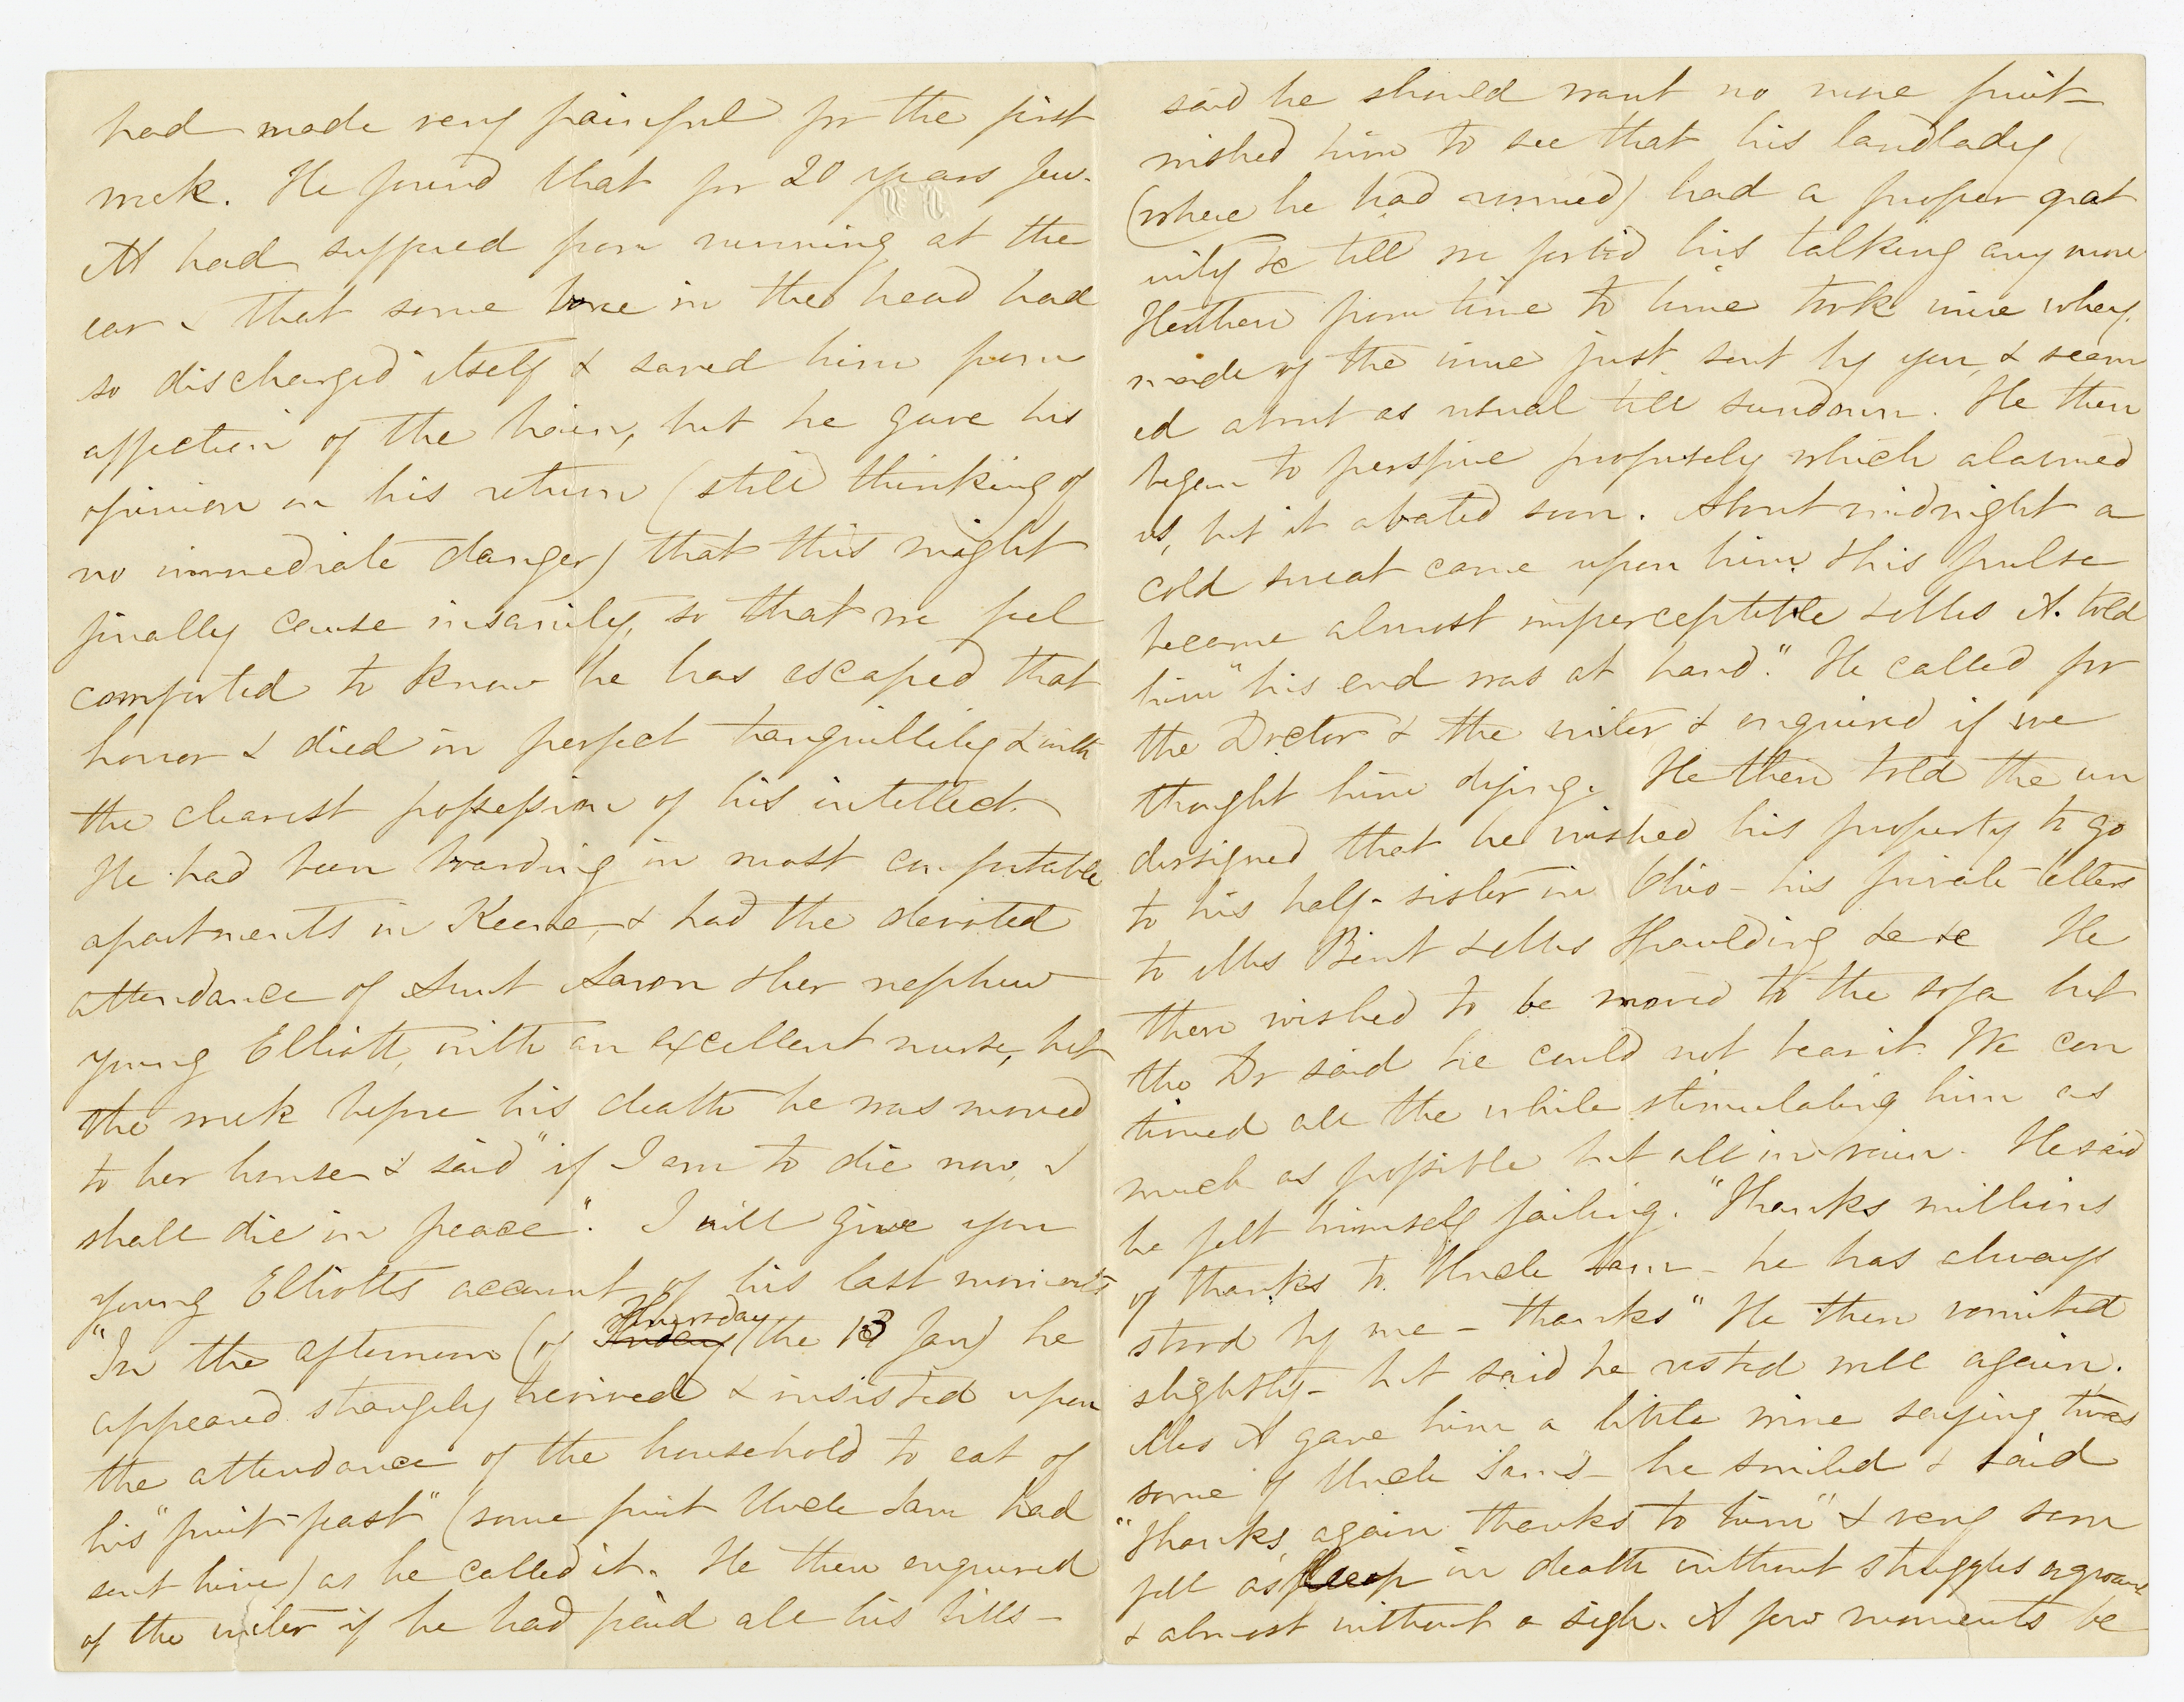 had made very painful for the first
week. He found that for 20 years Jew-
ett had suffered from running at the
ear & that some bone in the head had
so discharged itself & saved him from
affection of the brain, but he gave his
opinion on his return (still thinking of
no immediate danger) that this might
finally cause insanity, so that we feel
comforted to know he has escaped that
horror & died in perfect tranquillity & with
the clearest possession of his intellect.
He had been boarding in most comfortable
apartments in Keene, & had the devoted
attendance of Aunt Aaron & her nephew
young Elliott, with an excellent nurse, but
the week before his death he was moved
to her house & said "if I am to die now, I
shall die in peace". I will give you
young Elliotts account of his last moments
"In the afternoon (of Thursday the 13 Jan) he
appeared strangely revived & insisted upon
the attendance of the household to eat of
his "fruit-feast" (some fruit Uncle Sam had
sent him) as he called it. He then enquired
of the writer if he had paid all his bills-
said he should want no more fruit-
wished him to see that his landlady
(where he had roomed) had a proper grat
uity &c till we forbid his talking any more
He then from time to time took wine whey
made of the wine just sent by you, & seem
ed about as usual till sundown. He then
began to perspire profusely which alarmed
us, but it abated soon. About midnight a
cold sweat came upon him & his pulse
became almost imperceptible & Mrs A. told
him "his end was at hand." He called for
the Doctor & the writer & enquired if we
thought him dying. He then told the un
dersigned that he wished his property to go
to his half-sister in Ohio - his private letters
to Mrs Bent & Mrs Spaulding &c &c He
then wished to be moved to the sofa but
the Dr said he could not bear it. We con
tinued all the while stimulating him as
much as possible but all in vain. He said
he felt himself failing. "Thanks millions
of thanks to Uncle Sam - he has always
stood by me - thanks" He then vomited
slightly - but said he rested well again.
Mrs A gave him a little wine saying twas
some of Uncle Sam's - he smiled & said
"Thanks, again thanks to him" & very soon
fell asleep in death without struggles or groans
& almost without a sigh. A few moments be